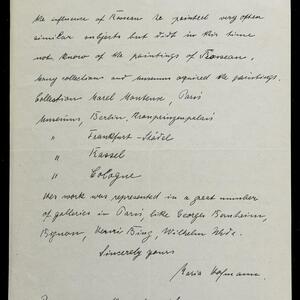 the influence of Rosseau he painted very often
similar subjects but didt in this time
not know of the paintings of Rosseau,
Many collections and museum aquired the paintings.
Collection Marel Monteux, Paris
Museums, Berlin, Kronprinzenpalais
" Frankfurt-Städel
" Kassel
" Cologne
Her work was represented in a great number
of galleries in Paris, like Georges Bernheim,
Bignon, Henri Bing, Wilhelm Uhde.
Sincerely yours
Maria Hofmann.